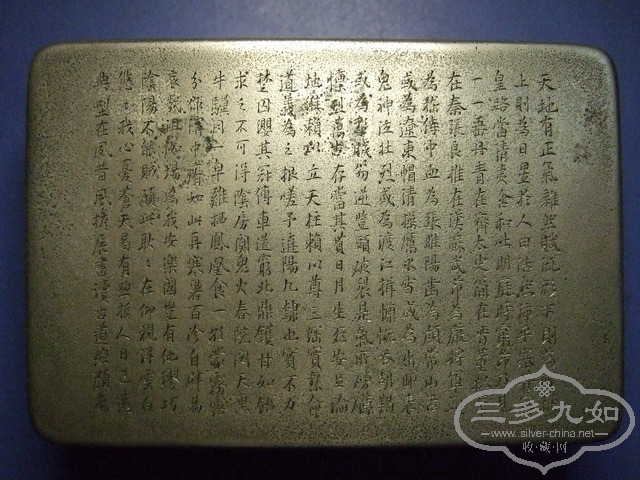 天地有正氣雜然賦流形下則為
上則為日星於人曰浩然沛乎塞
皇路當清夷含和吐明庭時窮節
一一垂丹青在齊太史簡在晉董狐
在秦張良椎在漢蘇武節為嚴將軍
為嵇侍中血為張睢陽齒為顏常山舌
或為遼東帽清操厲冰雪或為出師表
鬼神泣壯烈或為渡江楫慷慨吞胡羯
或為擊賊笏逆豎頭破裂是氣所磅礴
凜烈萬古存當其貫日月生死安足論
地維賴以立天柱賴以尊三綱實係命
道義為之根嗟予遘陽九隸也實不力
楚囚纓其冠傳車送窮北鼎鑊甘如飴
求之不可得陰房闃鬼火春院閟天黑
牛驥同一皁雞棲鳳凰食一朝蒙霧露
分作溝中瘠如此再寒暑百沴自辟易
哀哉沮洳場為我安樂國豈有他繆巧
陰陽不能賊顧此耿耿在仰視浮雲白
悠悠我心憂蒼天曷有極哲人日已遠
典型在夙昔風檐展書讀古道照顏色
三多九如
www.silver-china.net
收·藏·网